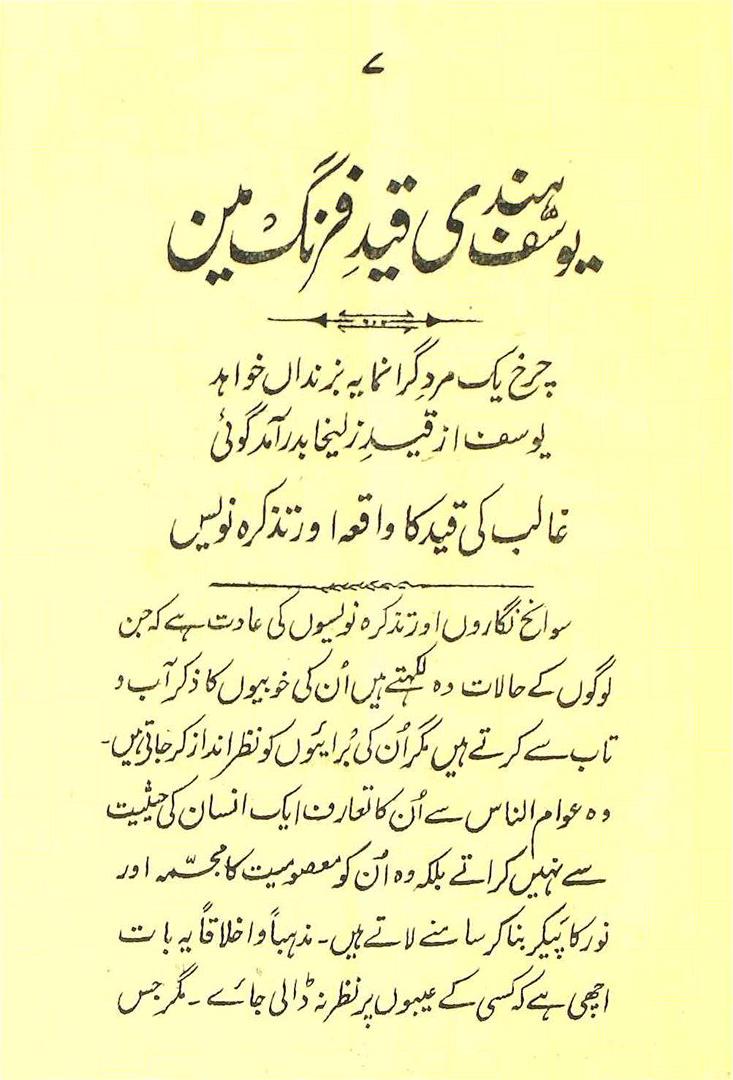 ۷
یوسف ہندی قیدِ فرنگ میں
چرخ یک مردِ گرانمایہ بزنداں خواہد
یوسف از قیدِ زلیخا بدر آمد گوئی
غالب کی قید کا واقعہ اور تذکرہ نویس
سوانح نگاروں اور تذکرہ نویسوں کی عادت ہے کہ جن
لوگوں کے حالات وہ لکھتے ہیں اُن کی خوبیوں کا ذکر آب و
تاب سے کرتے ہیں مگر اُن کی بُرایئوں کو نظر انداز کر جاتی ہیں۔
وہ عوام الناس سے اُن کا تعارف ایک انسان کی حیثیت
سے نہیں کراتے بلکہ وہ اُن کو معصومیت کا مجسّمہ اور
نور کا پَیکر بنا کر سامنے لاتے ہیں۔ مذہباً و اخلاقاً یہ بات
اچھی ہے کہ کسی کے عیبوں پر نظر نہ ڈالی جائے۔ مگر جس